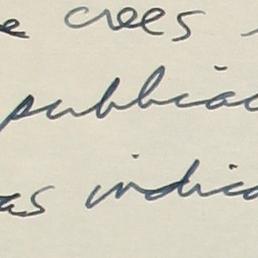 e crees
publicac
as indica